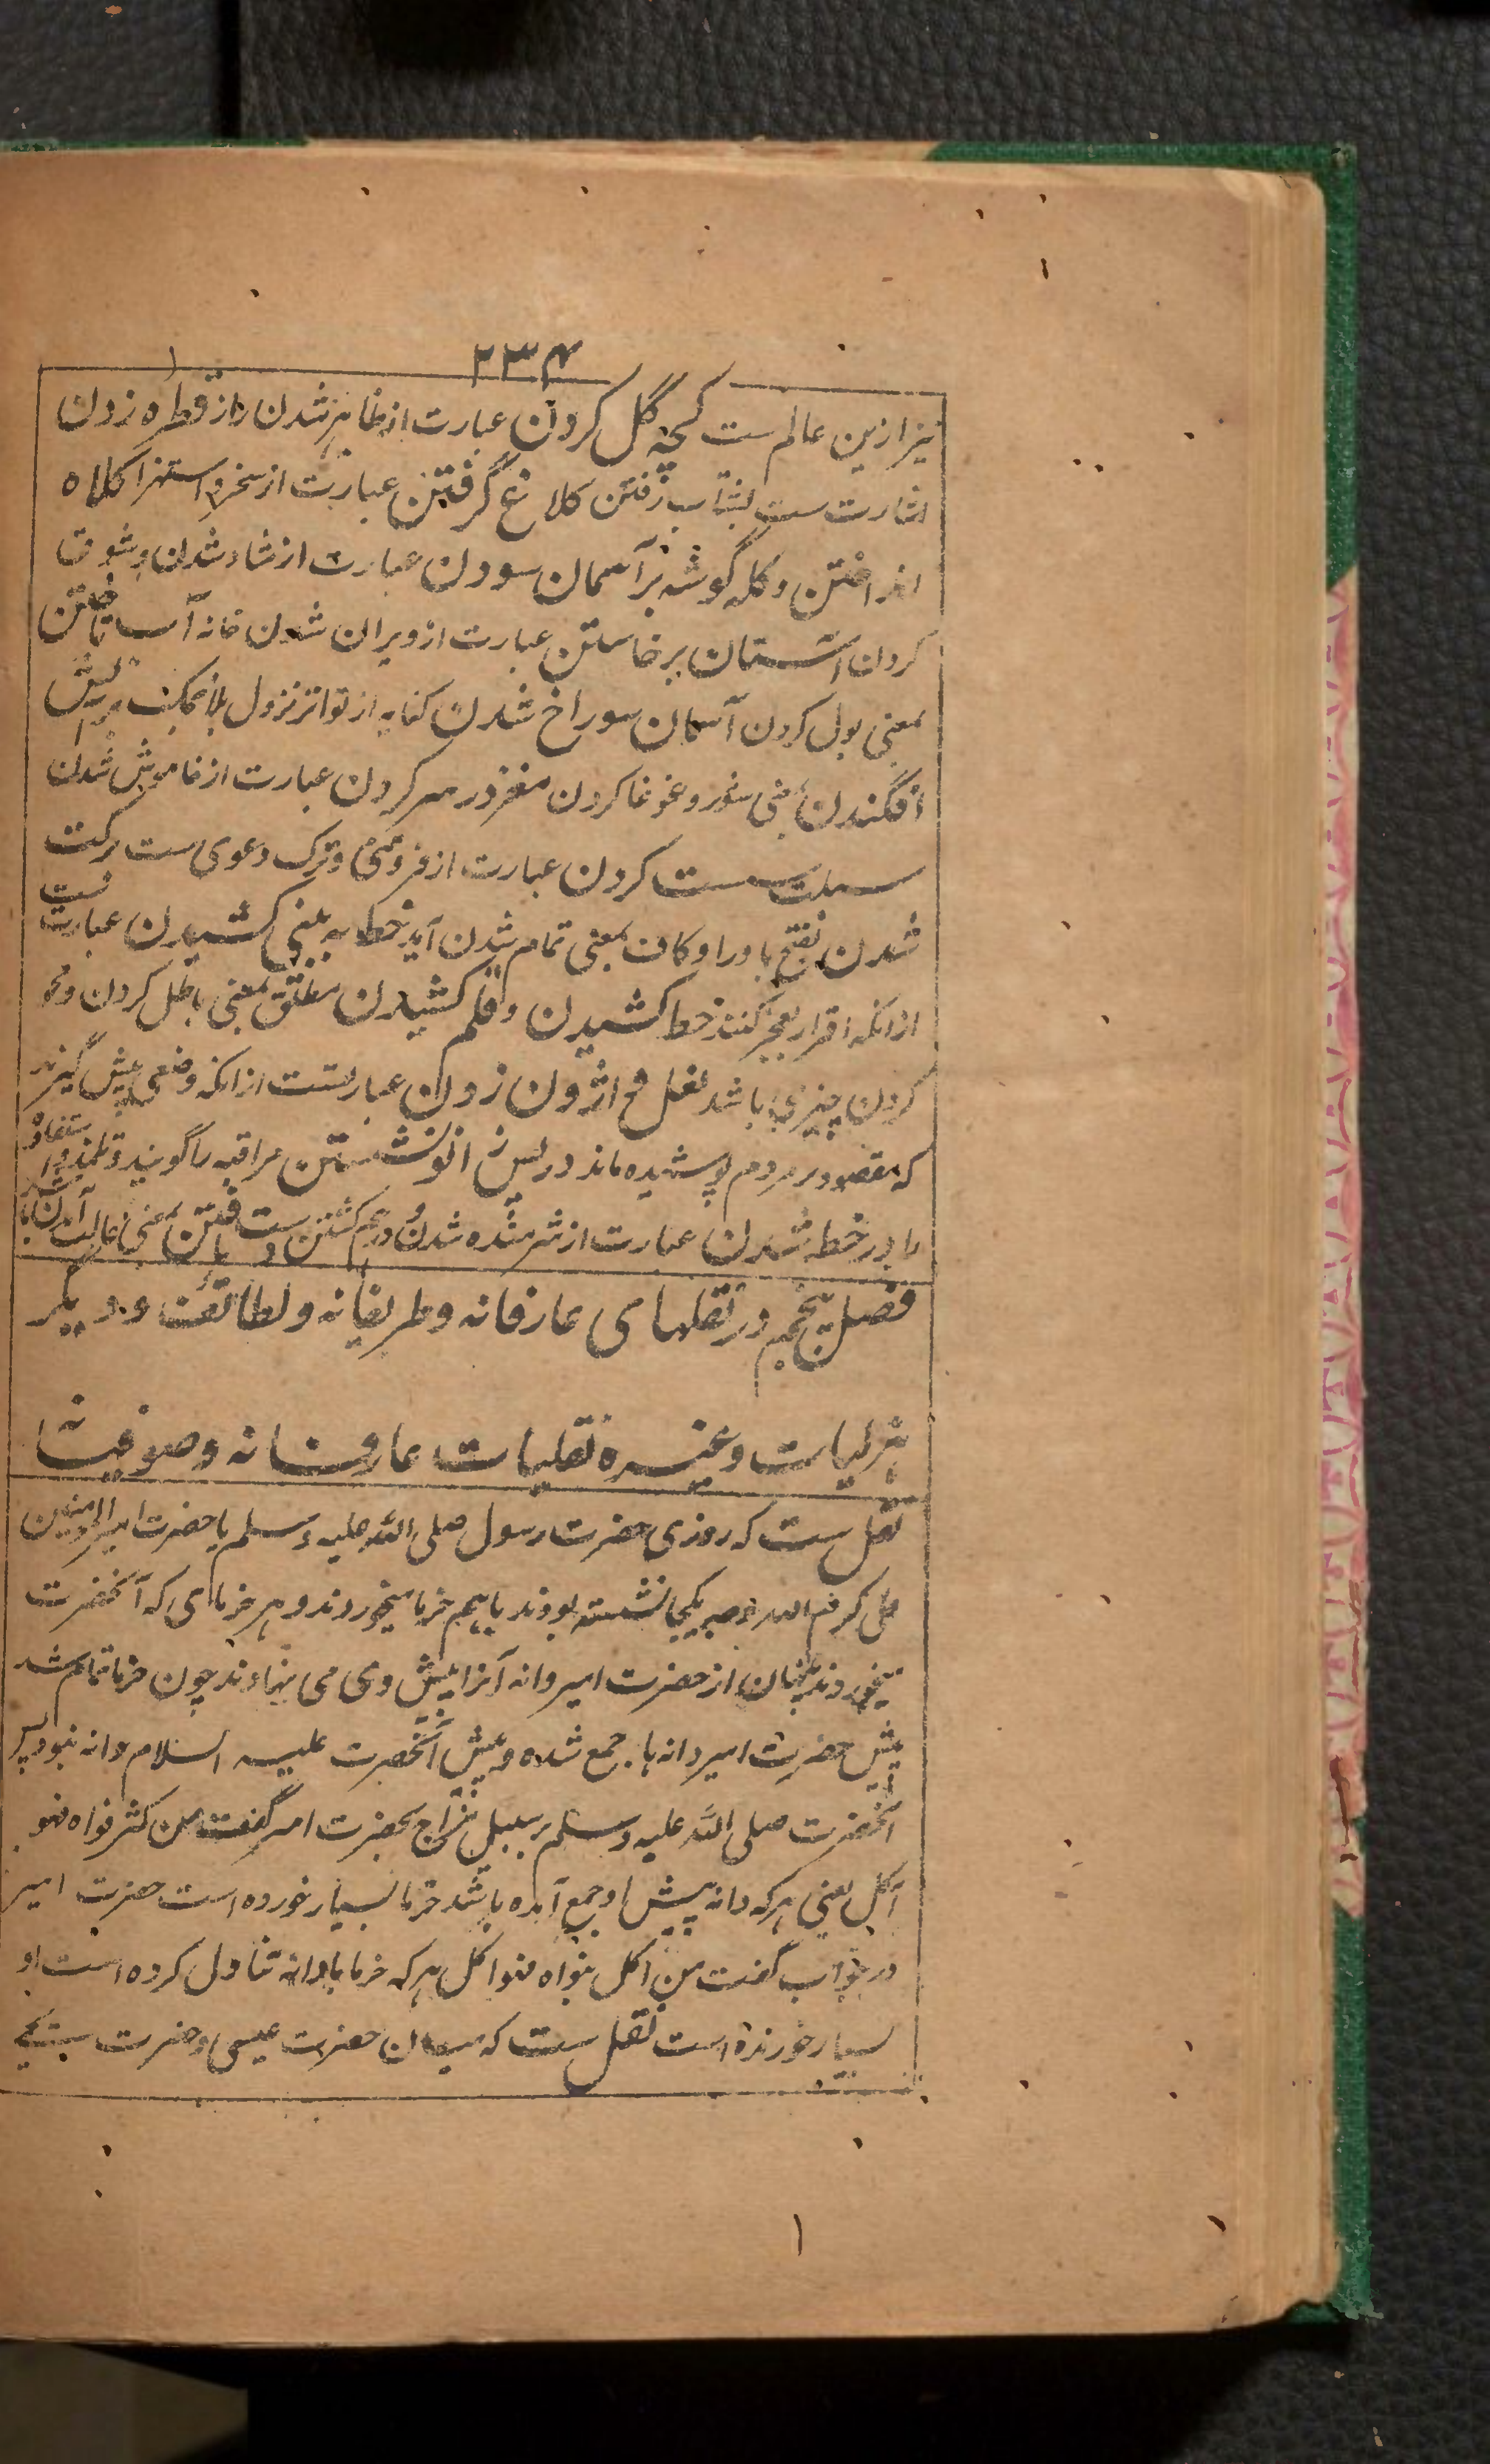 ۲۳۴
نیز ازین عالم ست کچه گل کردن عبارت از ظاهر شدن راز قطره زدن
اشارت ست بشتاب رفتن کلاغ گرفتن عبارت از سخر و استهزا کلاه
انداختن و کله گوشه بر آسمان سودن عبارت از شاد شدن و شوق
کردن آستان برخاستن عبارت از ویران شدن خانه آب تاختن
بمعنی بول کردن آسمان سوراخ شدن کنایه از تواتر نزول بلا
افگندن بمعنی شور و غوغا کردن مغز در سر کردن عبارت از خاموش شدن
سبلت سست کردن عبارت از فروتنی و ترک دعوی ست برکت
شدن بفتح با و را و کاف بمعنی تمام شدن آید خط به بینی کشیدن عبارت ست
از انکه اقرار بعجز کنند خط کشیدن و قلم کشیدن مطلق بمعنی باطل کردن و محو
کردن چیزی باشد نعل واژون زدن عبارتست از انکه وضعی پیش گیرند
که مقصود بر مردم پوشیده ماند در پس زانو نشستن مراقبه را گویند
را در خطه شدن عبارت از شرمنده شدن و در هم گشتن دست یافتن بمعنی غالب آمدن
فصل پنجم در نقلهای عارفانه و ظریفانه و لطائف و دیگر
هزلیات و غیره نقلیات عارفانه و صوفیانه
نقل ست که روزی حضرت رسول صلی الله علیه و سلم با حضرت امیر المومنین
علی کرم الله وجهه یکجا نشسته بودند باهم خرما میخوردند و هر خرمای که آنحضرت
میخوردند پنهان از حضرت امیر دانه آنرا پیش وی می نهادند چون خرما تمام شد
پیش حضرت امیر دانه ها جمع شده و پیش آنحضرت علیه السلام دانه نبود پس
آنحضرت صلی الله علیه و سلم بر سبیل مزاج بحضرت امیر گفت من کثر نواه فهو
آکل یعنی هر که دانه پیش او جمع آمده باشد خرما بسیار خورده است حضرت امیر
در جواب گفت من اکل نواه فهو اکل هر که خرما با دانه تناول کرده است او
بسیار خورنده است نقل ست که میان حضرت عیسی و حضرت یحیی